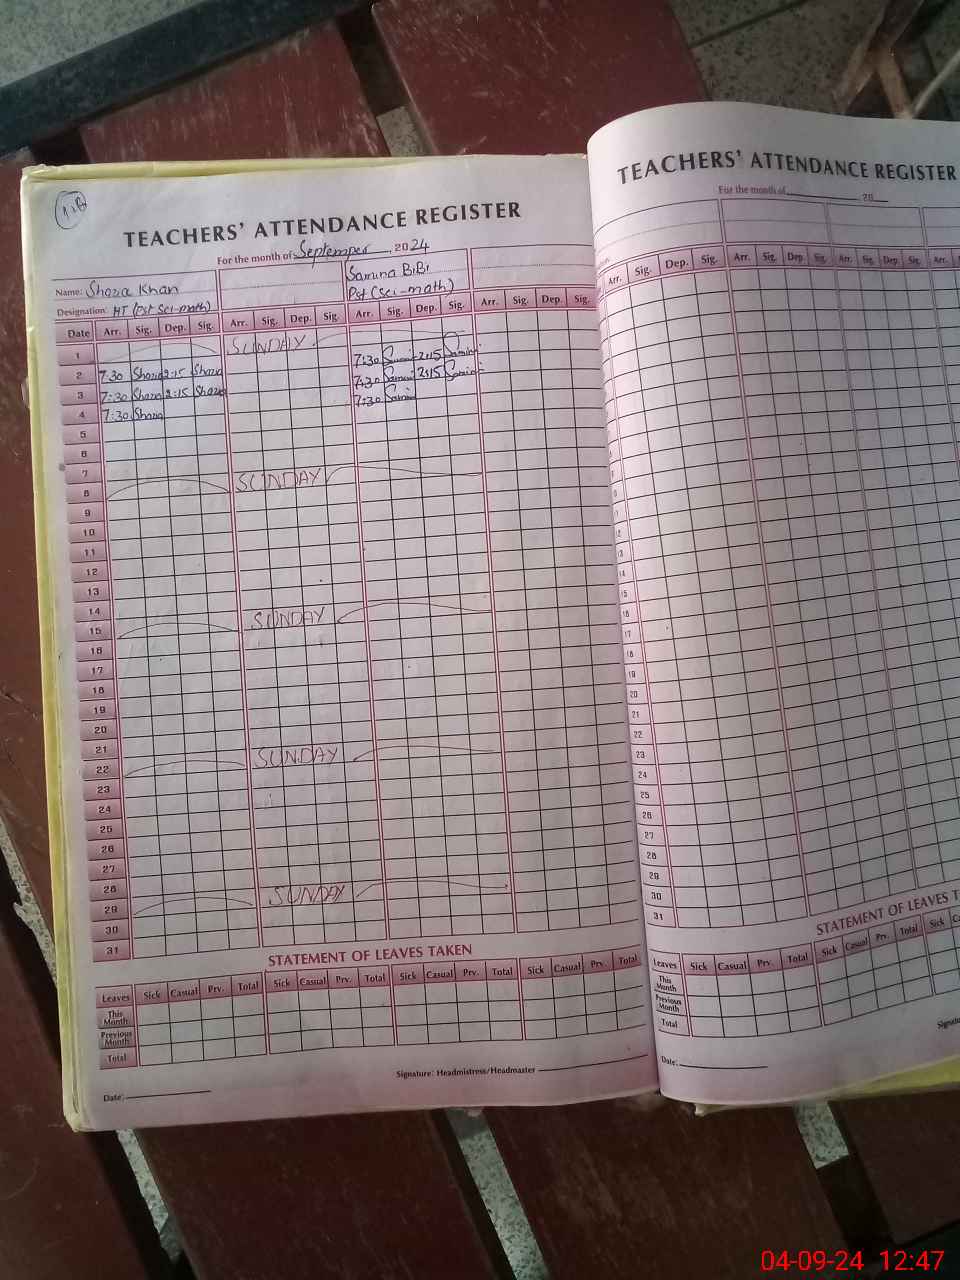 TEACHERS' ATTENDANCE REGISTER
For the month of September 2024
Name: Shazia Khan
Samina BiBi
Designation: HT (Pst Sci-math)
Pst (Sci-math)
Date Arr. Sig. Dep. Sig. Arr. Sig. Dep. Sig. Arr. Sig. Dep. Sig. Arr. Sig. Dep. Sig.
1 SUNDAY
2 7:30 Shazia 2:15 Shazia 7:30 Samina 2:15 Samina
3 7:30 Shazia 2:15 Shazia 7:30 Samina 2:15 Samina
4 7:30 Shazia 7:30 Samina
5
6
7
8 SUNDAY
9
10
11
12
13
14
15 SUNDAY
16
17
18
19
20
21
22 SUNDAY
23
24
25
26
27
28
29 SUNDAY
30
31
STATEMENT OF LEAVES TAKEN
Leaves Sick Casual Prv. Total Sick Casual Prv. Total Sick Casual Prv. Total Sick Casual Prv. Total
This Month
Previous Month
Total
Signature: Headmistress/Headmaster
Date:
TEACHERS' ATTENDANCE REGISTER
For the month of 20
Arr. Sig. Dep. Sig. Arr. Sig. Dep. Sig. Arr. Sig. Dep. Sig. Arr.
12
13
14
15
16
17
18
19
20
21
22
23
24
25
26
27
28
29
30
31
STATEMENT OF LEAVES
Leaves Sick Casual Prv. Total Sick Casual Prv. Total Sick
This Month
Previous Month
Total
Date:
04-09-24 12:47